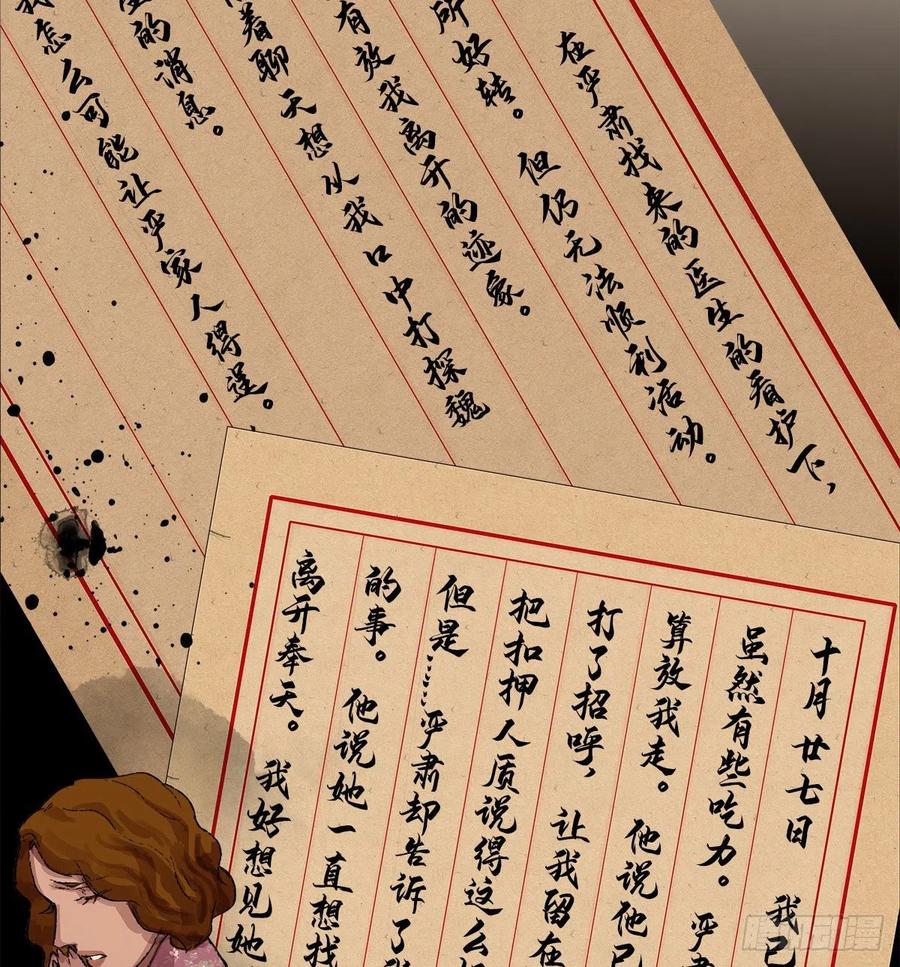 在严肃找来的医生的看护下，
所好转。 但仍无法顺利活动。
有效我离开的迹象。
着聊天想从我口中打探魏
的消息。
怎么可能让严家人得逞。
十月廿七日 我已
虽然有些吃力。 严肃
算效我走。 他说他已
打了招呼， 让我留在
把扣押人质说得这么
但是……严肃却告诉了我
的事。 他说她一直想找
离开奉天。
我好想见她
腾讯动漫